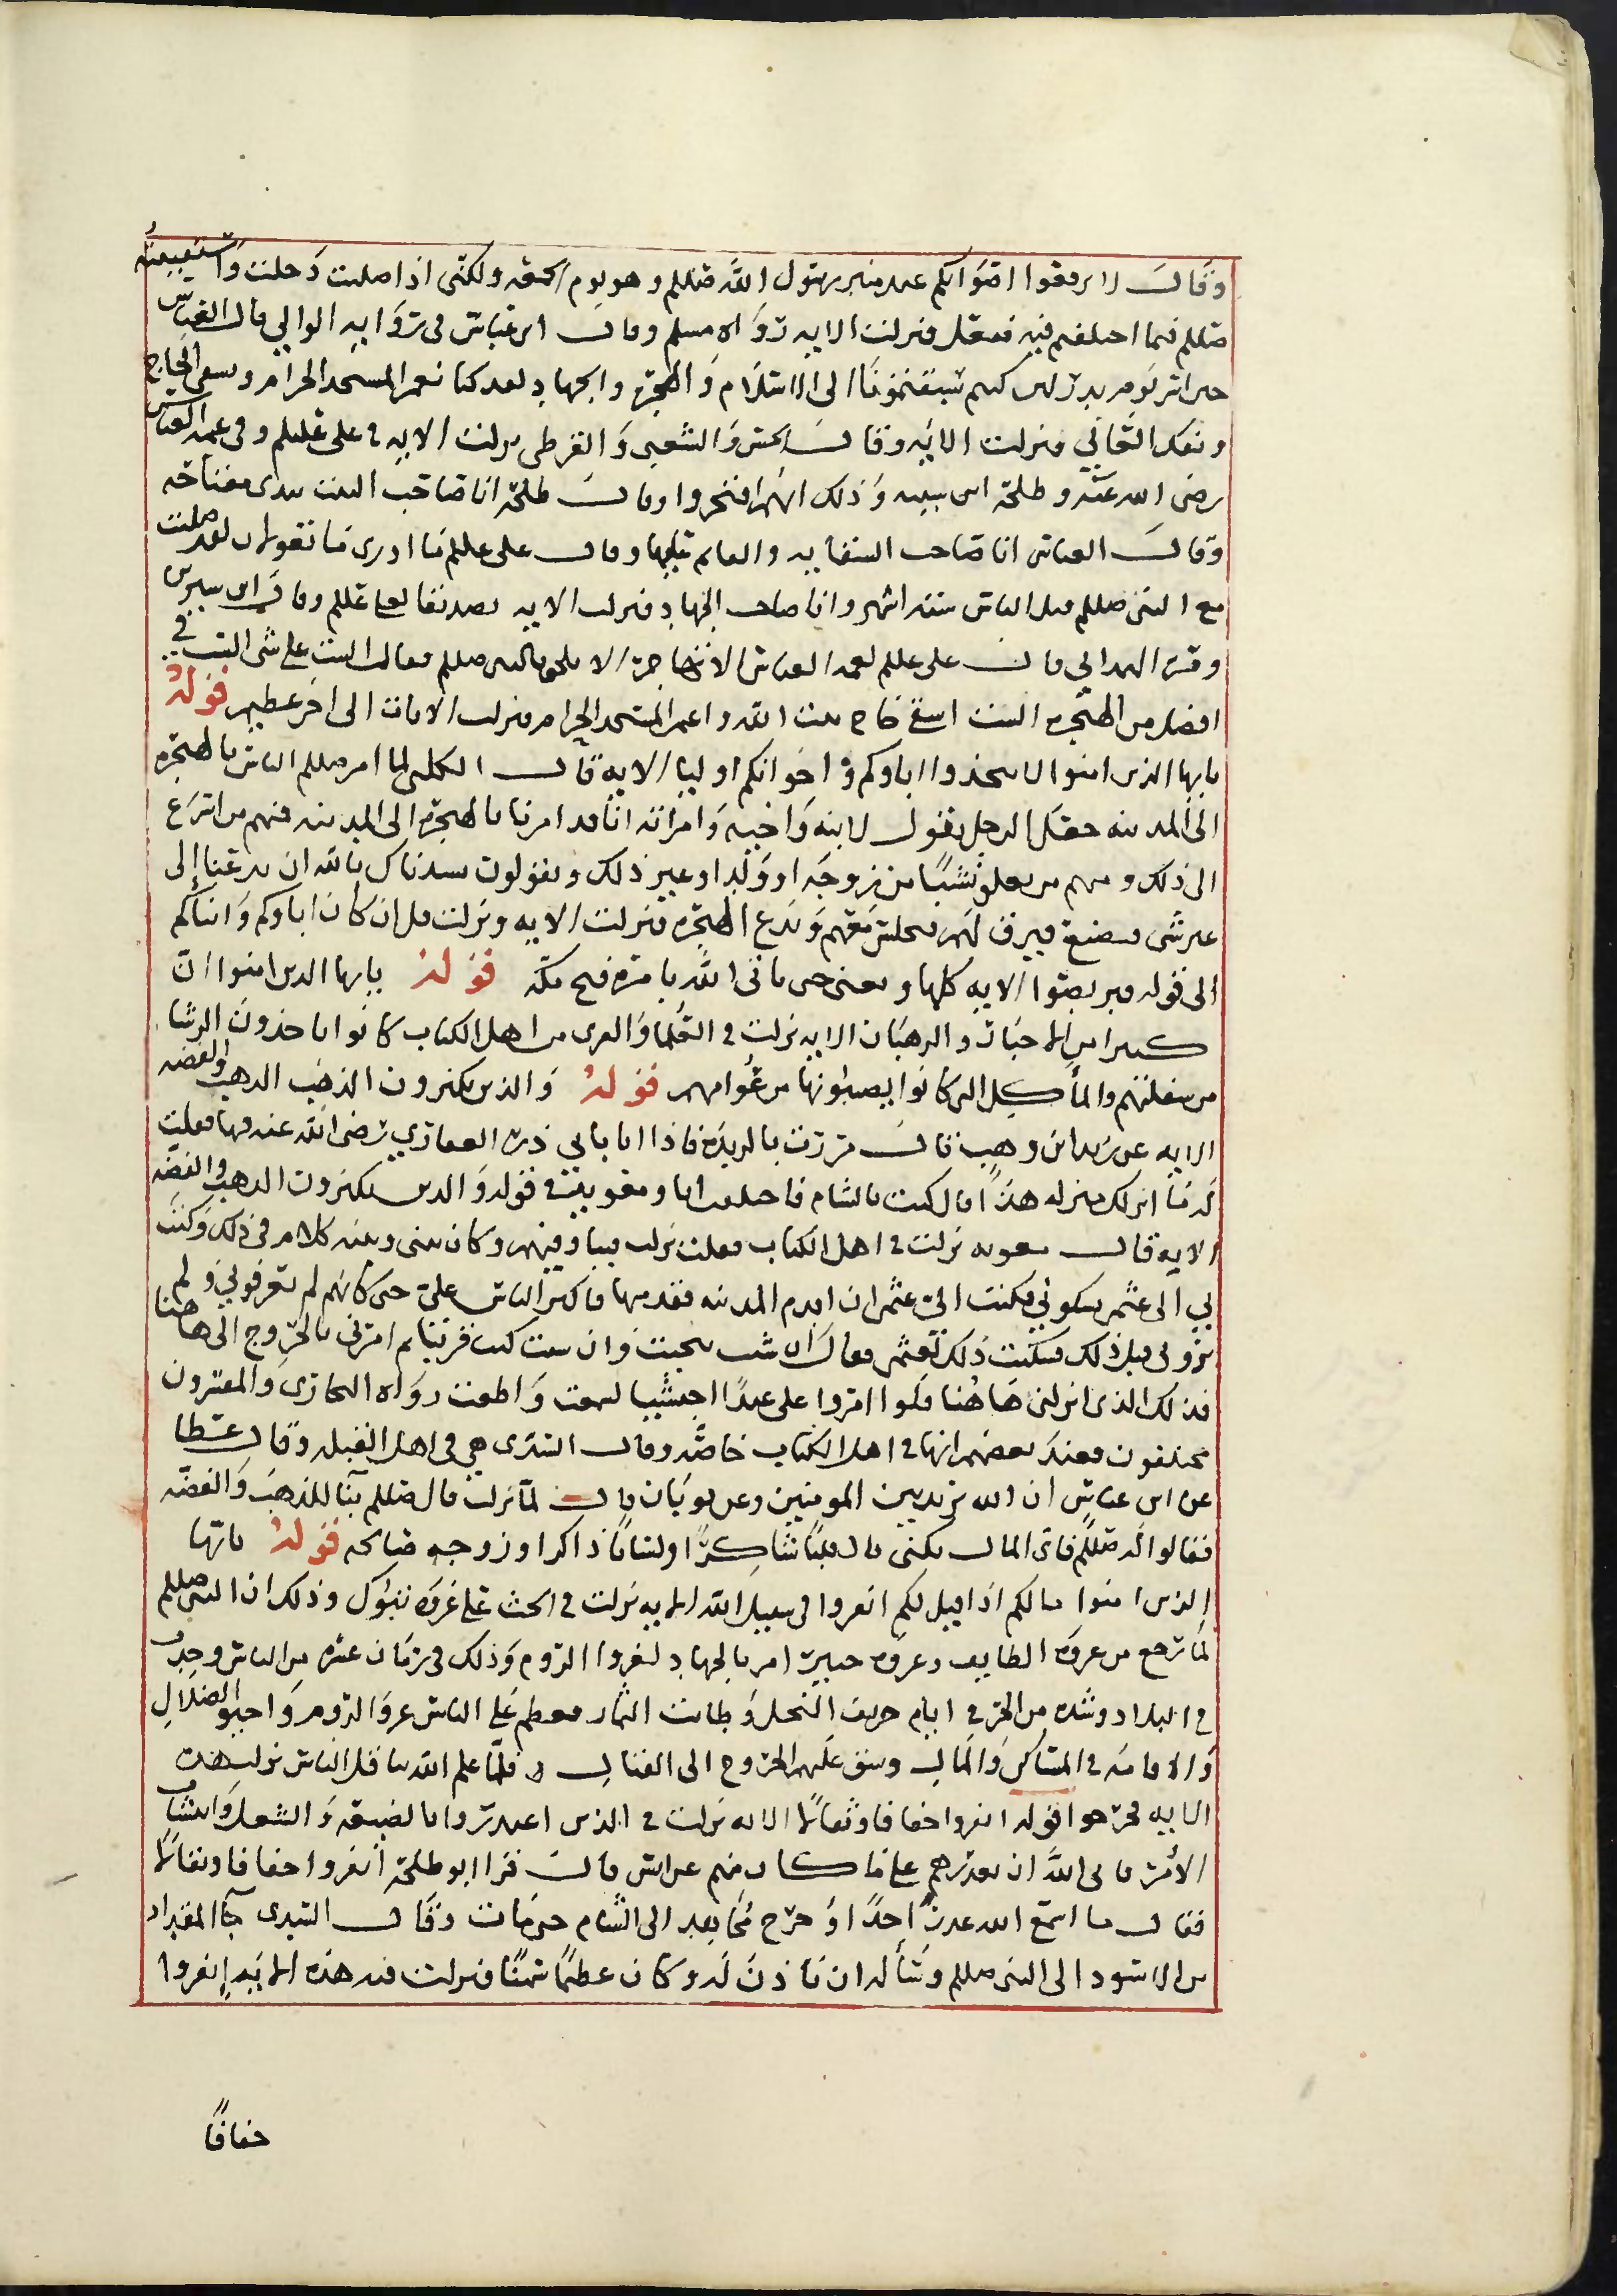 وقال لا ترفعوا اصواتكم عند منبر رسول الله صللم وهو يوم الجمعة ولكني اذا صليت دخلت واستفتيته
صللم فيما اختلفتم فيه ففعل فنزلت الايه رواه مسلم وقال ابن عباس في روايه الوالبي قال العباس
حين اسر يوم بدر لئن كنتم سبقتمونا الى الاسلام والهجرة والجهاد لقد كنا نعمر المسجد الحرام ونسقي الحاج
ونفك العاني فنزلت الايه وقال الحسن والشعبي والقرظي نزلت الايه في علي عليلم وفي عمه العباس
رضي الله عنه وطلحة ابن شيبه وذلك انهم افتخروا وقال طلحة انا صاحب البيت بيدي مفتاحه
وقال العباس انا صاحب السقايه والقائم عليها وقال علي عليلم ما ادري ما تقولان لقد صليت
مع النبي صللم قبل الناس ستة اشهر وانا صاحب الجهاد فنزلت الايه تصديقا لعلي عللم وقال ابن سيرين
ومره الهمداني قال علي عللم لعمه العباس الا تهاجر الا تلحق بالنبي صللم فقال الست على شي الست في
افضل من الهجرة الست اسقي حاج بيت الله واعمر المسجد الحرام فنزلت الايات الى اخر عظيم قوله
يايها الذين امنوا لا تتخذوا اباوكم واخوانكم اوليا الايه قال الكلبي لما امر صللم الناس بالهجرة
الى المدينه جعل الرجل يقول لابنه واخيه وامراته انا قد امرنا بالهجرة الى المدينه فمنهم من اسرع
الى ذلك ومنهم من يتعلق نشبا من زوجه او ولد او غير ذلك ويقولون نشدناك بالله ان تدعنا إلى
غير شي فنضيع فيرق لهم فيجلس معهم ويدع الهجرة فنزلت الايه ونزلت قل ان كان اباوكم وابناكم
الى قوله فتربصوا الايه كلها ومعنى حتى ياتي الله بامره فتح مكة قوله يايها الذين امنوا ان
كثيرا من الاحبار والرهبان الايه نزلت في العلما والقرى من اهل الكتاب كانوا ياخذون الرشا
من سفلتهم والمأكل التي كانوا يصيبونها من عوامهم قوله والذين يكنزون الذهب الذهب والفضه
الايه عن زيد ابن وهب قال مررت بالربذه فاذا انا بابي ذر الغفاري رضي الله عنه فيها فقلت
له ما انزلك منزلك هذا قال كنت بالشام فاختلفت انا ومعويه في قوله والذين يكنزون الذهب والفضه
الايه قال معويه نزلت في اهل الكتاب فقلت نزلت فينا وفيهم وكان بيني وبينه كلام في ذلك وكتب
بي الى عثمن يشكوني فكتب الي عثمن ان اقدم المدينه فقدمتها فاكثر الناس علي حتى كانهم لم يعرفوني ولم
يروني قبل ذلك فشكيت ذلك لعثمن فقال ان شيت تنحيت وان شيت كنت قريبا ثم امرني بالخروج الى هاهنا
فذلك الذي انزلني هاهنا فلو امروا علي عبدا حبشيا لسمعت واطعت رواه البخاري والمفسرون
مختلفون فعند بعضهم انها في اهل الكتاب خاصه وقال السدي هي في اهل القبله وقال عطا
عن ابن عباس ان الله يريد بين المومنين وعن ثوبان قال لما نزلت قال صللم تبا للذهب والفضه
فقالوا له صللم فاي المال نكنز قال قلبا شاكرا ولسانا ذاكرا وزوجه صالحه قوله يايها
الذين امنوا مالكم اذا قيل لكم انفروا في سبيل الله الايه نزلت في الحث على غزوة تبوك وذلك ان النبي صللم
لما رجع من غزوة الطايف وغزوة حنين امر بالجهاد لغزوا الروم وذلك في زمان عسره من الناس وجدب
في البلاد وشده من الحر في ايام خريف النخل وطابت الثمار فعظم على الناس غزو الروم واحبوا الضلال
والاقامه في المساكن والمال وشق عليهم الخروج الى القتال فلما علم الله تثاقل الناس نزلت هذه
الايه قوله انفروا خفافا وثقالا الايه نزلت في الذين اعتذروا بالضيعه والشغل وانتشار
الأمر فابى الله ان يعذرهم على ما كان منهم عن انس قال قرا ابو طلحة انفروا خفافا وثقالا
فقال ما اسمع الله عذر احدا وخرج مجاهد الى الشام حتى مات وقال السدي جا المقداد
بن الاسود الى النبي صللم وسأله ان ياذن له وكان عظيما سمينا فنزلت فيه هذه الايه إنفروا
خفافا